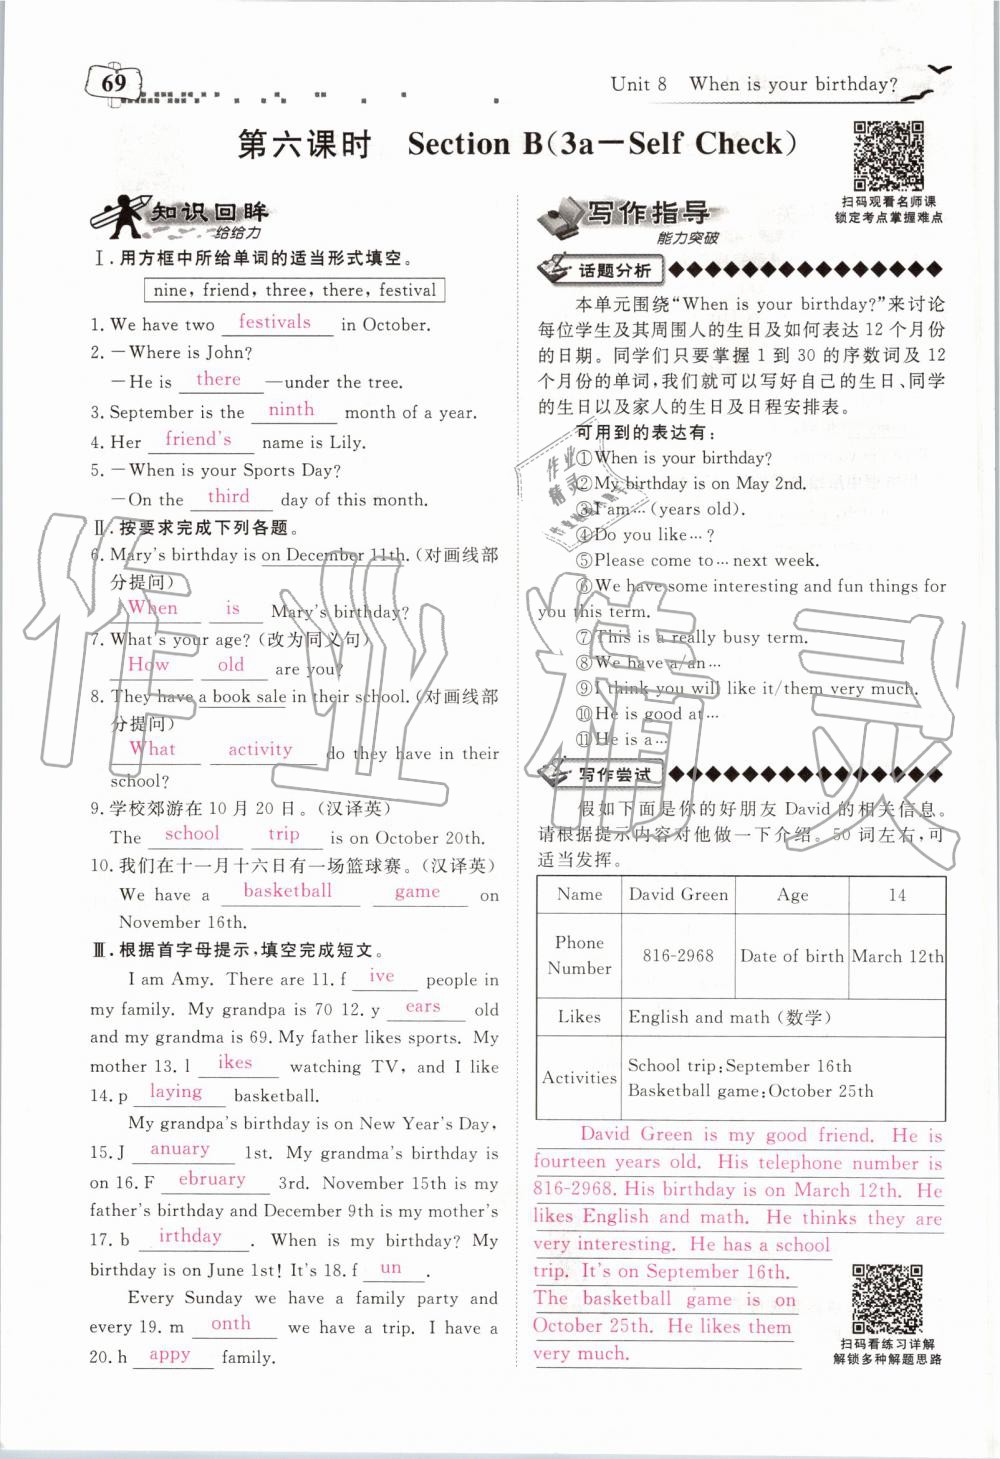 69
Unit 8 When is your birthday?
第六课时 Section B(3a—Self Check)
扫码观看名师课
锁定考点掌握难点
知识回眸
给给力
Ⅰ.用方框中所给单词的适当形式填空。
nine, friend, three, there, festival
1. We have two festivals in October.
2. —Where is John?
—He is there —under the tree.
3. September is the ninth month of a year.
4. Her friend's name is Lily.
5. —When is your Sports Day?
—On the third day of this month.
Ⅱ.按要求完成下列各题。
6. Mary's birthday is on December 11th.(对画线部
分提问)
When is Mary's birthday?
7. What's your age?(改为同义句)
How old are you?
8. They have a book sale in their school.(对画线部
分提问)
What activity do they have in their
school?
9.学校郊游在10月20日。(汉译英)
The school trip is on October 20th.
10.我们在十一月十六日有一场篮球赛。(汉译英)
We have a basketball game on
November 16th.
Ⅲ.根据首字母提示,填空完成短文。
I am Amy. There are 11. f ive people in
my family. My grandpa is 70 12. y ears old
and my grandma is 69. My father likes sports. My
mother 13. l ikes watching TV, and I like
14. p laying basketball.
My grandpa's birthday is on New Year's Day,
15. J anuary 1st. My grandma's birthday is
on 16. F ebruary 3rd. November 15th is my
father's birthday and December 9th is my mother's
17. b irthday . When is my birthday? My
birthday is on June 1st! It's 18. f un .
Every Sunday we have a family party and
every 19. m onth we have a trip. I have a
20. h appy family.
写作指导
能力突破
话题分析
本单元围绕“When is your birthday?”来讨论
每位学生及其周围人的生日及如何表达12个月份
的日期。同学们只要掌握1到30的序数词及12
个月份的单词,我们就可以写好自己的生日、同学
的生日以及家人的生日及日程安排表。
可用到的表达有:
①When is your birthday?
②My birthday is on May 2nd.
③I am…(years old).
④Do you like…?
⑤Please come to…next week.
⑥We have some interesting and fun things for
you this term.
⑦This is a really busy term.
⑧We have a/an…
⑨I think you will like it/them very much.
⑩He is good at…
⑪He is a…
写作尝试
假如下面是你的好朋友David的相关信息。
请根据提示内容对他做一下介绍。50词左右,可
适当发挥。
Name David Green Age 14
Phone Number 816-2968 Date of birth March 12th
Likes English and math(数学)
Activities School trip:September 16th
Basketball game:October 25th
David Green is my good friend. He is
fourteen years old. His telephone number is
816-2968. His birthday is on March 12th. He
likes English and math. He thinks they are
very interesting. He has a school
trip. It's on September 16th.
The basketball game is on
October 25th. He likes them
very much.
扫码看练习详解
解锁多种解题思路
作业精灵
作业
精灵